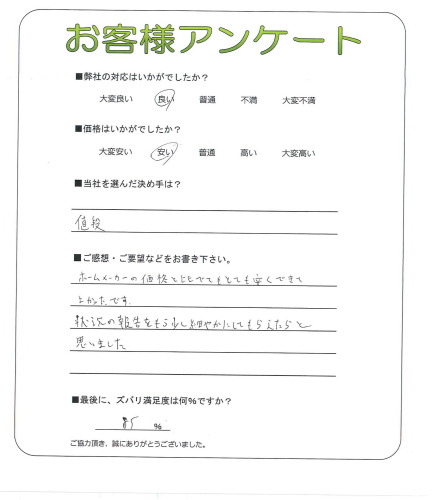 お客様アンケート
■弊社の対応はいかがでしたか?
大変良い 良い 普通 不満 大変不満
■価格はいかがでしたか?
大変安い 安い 普通 高い 大変高い
■当社を選んだ決め手は?
値段
■ご感想・ご要望などをお書き下さい。
ホームメーカーの価格と比べてもとても安くできて
よかったです。
状況の報告をもう少し細やかにしてもらえたらと
思いました
■最後に、ズバリ満足度は何%ですか?
85 %
ご協力頂き、誠にありがとうございました。